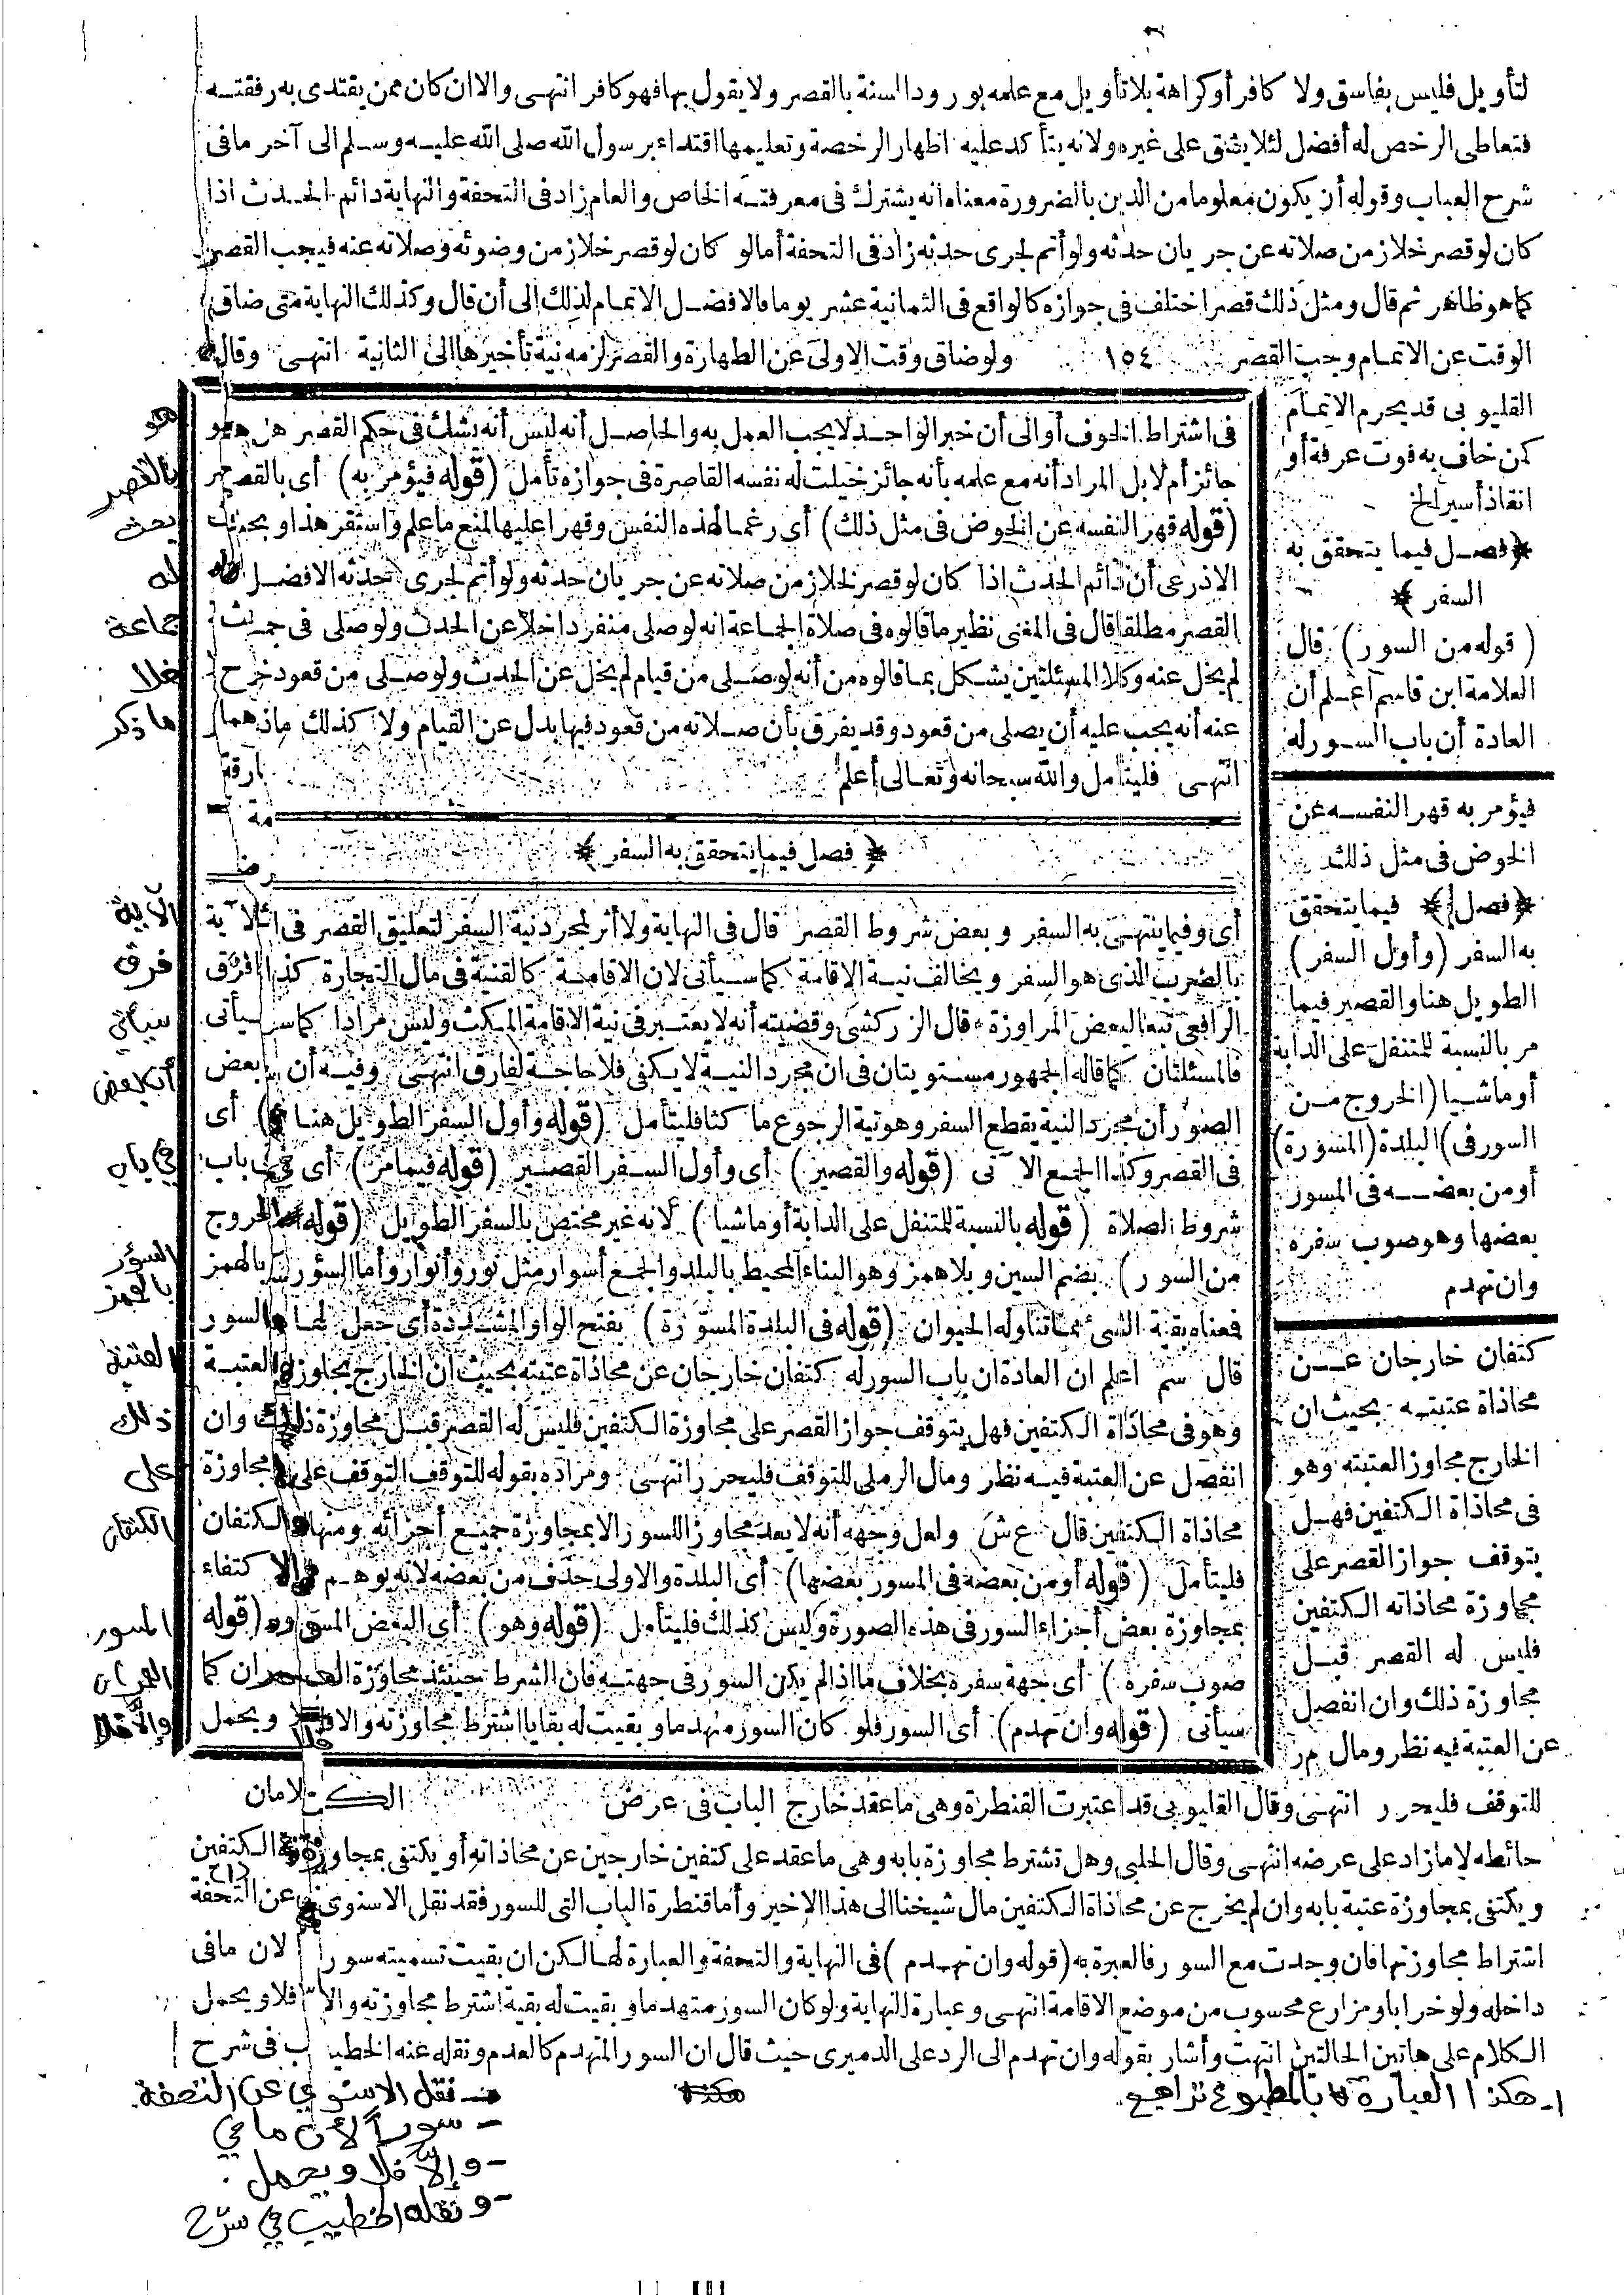 لتأويل فليس بفاسق ولا كافر أو كراهة بلا تأويل مع علمه بورود السنة بالقصر ولا يقول بها فهو كافر انتهى والا ان كان ممن يقتدى به رفقته
فتعاطى الرخص له أفضل لئلا يشق على غيره ولانه يتأكد عليه اظهار الرخصة وتعليمها اقتداء برسول الله صلى الله عليه وسلم الى آخر ما فى
شرح العباب وقوله أن يكون معلوما من الدين بالضرورة معناه انه يشترك فى معرفته الخاص والعام زاد فى التحفة والنهاية دائم الحدث اذا
كان لو قصر خلا زمن صلاته عن جريان حدثه ولو أتم لجرى حدثه زاد فى التحفة أما لو كان لو قصر خلا زمن وضوئه وصلاته عنه فيجب القصر
كما هو ظاهر ثم قال ومثل ذلك قصر اختلف فى جوازه كالواقع فى الثمانية عشر يوما فالافضل الاتمام لذلك الى أن قال وكذلك النهاية متى ضاق
الوقت عن الاتمام وجب القصر ١٥٤ ولو ضاق وقت الاولى عن الطهارة والقصر لزمه نية تأخيرها الى الثانية انتهى وقال
القليوبى قد يحرم الاتمام
كمن خاف به فوت عرفة أو
انقاذ أسير الخ
﴿فصل فيما يتحقق به
السفر﴾
(قوله من السور) قال
العلامة ابن قاسم اعلم أن
العادة أن باب السور له
فيؤمر به قهرا لنفسه عن
الخوض فى مثل ذلك
﴿فصل﴾ فيما يتحقق
به السفر (وأول السفر)
الطويل هنا والقصير فيما
مر بالنسبة للمتنفل على الدابة
أو ماشيا (الخروج من
السور فى) البلدة (المسورة)
أو من بعضه فى المسور
بعضها وهو صوب سفره
وان تهدم
كتفان خارجان عن
محاذاة عتبته بحيث ان
الخارج مجاوز العتبته وهو
فى محاذاة الكتفين فهل
يتوقف جواز القصر على
مجاوزة محاذاته الكتفين
فليس له القصر قبل
مجاوزة ذلك وان انفصل
عن العتبة فيه نظر ومال مر
فى اشتراط الخوف أو الى أن خبر الواحد لا يجب العمل به والحاصل أنه ليس أنه يشك فى حكم القصر هل هو
جائز أم لا بل المراد أنه مع علمه بأنه جائز خيلت له نفسه القاصرة فى جوازه تأمل (قوله فيؤمر به) أى بالقصر
(قوله قهرا لنفسه عن الخوض فى مثل ذلك) أى رغما لهذه النفس وقهرا عليها لمنع ما علم واستقر هذا وبحث
الاذرعى أن دائم الحدث اذا كان لو قصر لخلا زمن صلاته عن جريان حدثه ولو أتم لجرى حدثه الافضل له
القصر مطلقا قال فى المغنى نظير ما قالوه فى صلاة الجماعة انه لو صلى منفردا خلا عن الحدث ولو صلى فى جماعة
لم يخل عنه وكلا المسئلتين يشكل بما قالوه من أنه لو صلى من قيام لم يخل عن الحدث ولو صلى من قعود خلا
عنه أنه يجب عليه أن يصلى من قعود وقد يفرق بأن صلاته من قعود فيها بدل عن القيام ولا كذلك ما ذكر
انتهى فليتأمل والله سبحانه وتعالى أعلم
﴿فصل فيما يتحقق به السفر﴾
أى وفيما ينتهى به السفر وبعض شروط القصر قال فى النهاية ولا أثر لمجرد نية السفر لتعليق القصر فى الآية
بالضرب الذى هو السفر ويخالف نية الاقامة كما سيأتى لان الاقامة كالقنية فى مال التجارة كذا فرق
الرافعى تبعا لبعض المراوزة قال الزركشى وقضيته أنه لا يعتبر فى نية الاقامة المكث وليس مرادا كما سيأتى
فالمسئلتان كما قاله الجمهور مستويتان فى ان مجرد النية لا يكفى فلا حاجة لفارق انتهى وفيه أن بعض
الصور أن مجرد النية يقطع السفر وهو نية الرجوع ماكثا فليتأمل (قوله وأول السفر الطويل هنا) أى
فى القصر وكذا الجمع الآتى (قوله والقصير) أى وأول السفر القصير (قوله فيما مر) أى فى باب
شروط الصلاة (قوله بالنسبة للمتنفل على الدابة أو ماشيا) لانه غير مختص بالسفر الطويل (قوله الخروج
من السور) بضم السين وبلا همز وهو البناء المحيط بالبلد والجمع أسوار مثل نور وأنوار وأما السؤر بالهمز
فمعناه بقية الشئ مما تناوله الحيوان (قوله فى البلدة المسورة) بفتح الواو المشددة أى جعل لها السور
قال سم اعلم ان العادة ان باب السور له كتفان خارجان عن محاذاة عتبته بحيث ان الخارج يجاوز العتبة
وهو فى محاذاة الكتفين فهل يتوقف جواز القصر على مجاوزة الكتفين فليس له القصر قبل مجاوزة ذلك وان
انفصل عن العتبة فيه نظر ومال الرملى للتوقف فليحرر انتهى ومراده بقوله للتوقف التوقف على مجاوزة
محاذاة الكتفين قال ع ش ولعل وجهه أنه لا يعد مجاوزا للسور الا بمجاوزة جميع أجزائه ومنها الكتفان
فليتأمل (قوله أو من بعضه فى المسور بعضها) أى البلدة والاولى حذف من بعضه لانه يوهم الا كتفاء
بمجاوزة بعض أجزاء السور فى هذه الصورة وليس كذلك فليتأمل (قوله وهو) أى البعض المسور (قوله
صوب سفره) أى جهة سفره بخلاف ما اذا لم يكن السور فى جهته فان الشرط حينئذ مجاوزة العمران كما
سيأتى (قوله وان تهدم) أى السور فلو كان السور منهدما وبقيت له بقايا اشترط مجاوزته والا فلا ويحمل
هو
بالقصر
بحث
له
جماعة
خلا
ما ذكر
الآية
فرق
سيأتي
أن بعض
في باب
السؤر
بالهمز
العتبة
ذلك
على
الكتفان
المسور
العمران
وإلا فلا
للتوقف فليحرر انتهى وقال القليوبى قد اعتبرت القنطرة وهى ما عقد خارج الباب فى عرض الكلامان
حائطه لا ما زاد على عرضه انتهى وقال الحلبى وهل تشترط مجاوزة بابه وهى ما عقد على كتفين خارجين عن محاذاته أو يكتفى بمجاوزة الكتفين (١)
ويكتفى بمجاوزة عتبة بابه وان لم يخرج عن محاذاة الكتفين مال شيخنا الى هذا الاخير وأما قنطرة الباب التى للسور فقد نقل الاسنوى عن التحفة
اشتراط مجاوزتها فان وجدت مع السور فالعبرة به (قوله وان تهدم) فى النهاية والتحفة والعبارة لها لكن ان بقيت تسميته سورا لان ما فى
داخله ولو خرابا ومزارع محسوب من موضع الاقامة انتهى وعبارة النهاية ولو كان السور متهدما وبقيت له بقية اشترط مجاوزته والا فلا ويحمل
الكلام على هاتين الحالتين انتهت وأشار بقوله وان تهدم الى الرد على الدميرى حيث قال ان السور المتهدم كالعدم ونقله عنه الخطيب فى شرح
١ـ هكذا العبارة بالمطبوع تراجع.
ـ نقل الاسنوي عن التحفة.
ـ سوراً لأن ما في
ـ وإلا فلا ويحمل.
ـ ونقله الخطيب في شرح